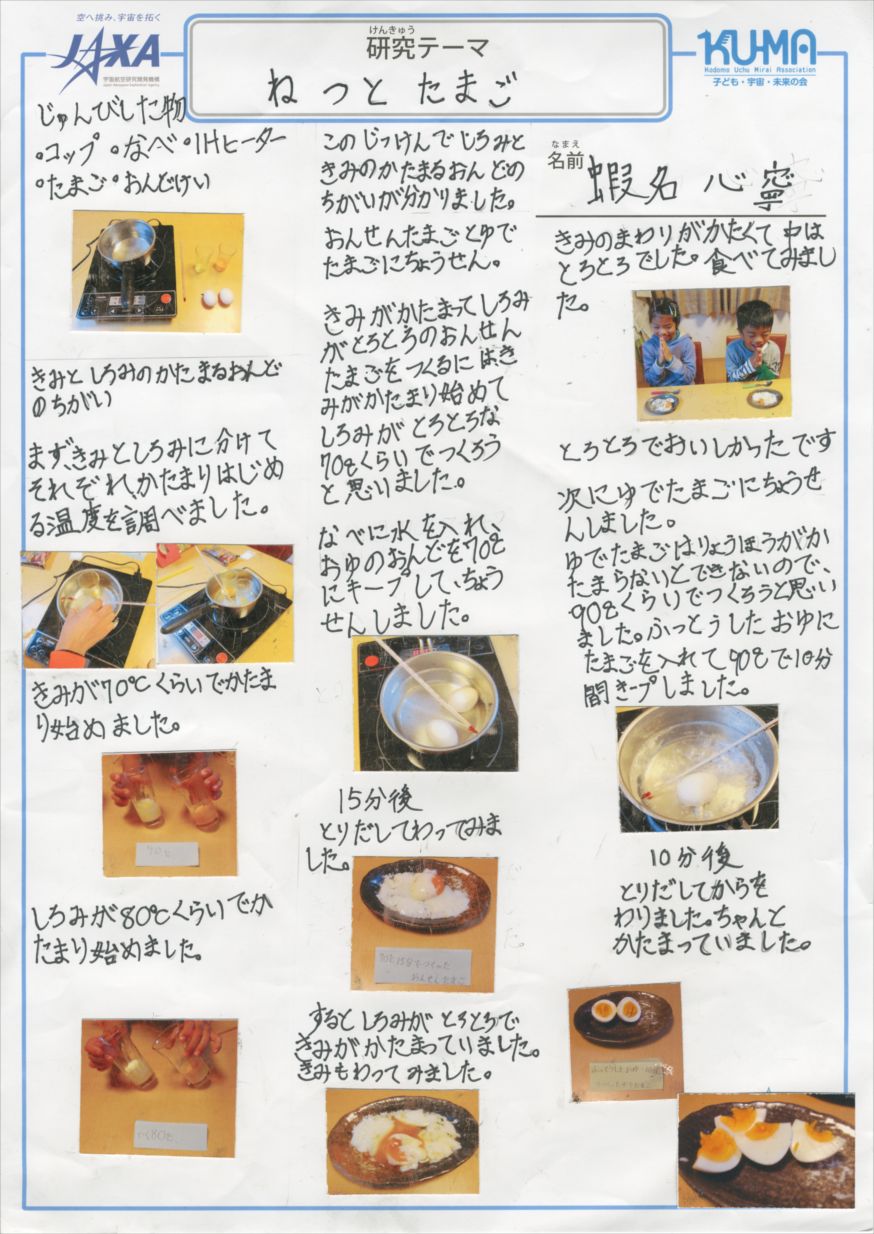 空へ挑み、宇宙を拓く
JAXA
宇宙航空研究開発機構
Japan Aerospace Exploration Agency
けんきゅう
研究テーマ
ねつとたまご
KU-MA
Kodomo Uchu Mirai Association
子ども・宇宙・未来の会
なまえ
名前
蝦名 心寧
じゅんびした物
・コップ ・なべ ・IHヒーター
・たまご ・おんどけい
きみとしろみのかたまるおんど
のちがい
まず、きみとしろみに分けて
それぞれ、かたまりはじめ
る温度を調べました。
きみが70℃くらいでかたま
り始めました。
70℃
しろみが80℃くらいでか
たまり始めました。
80℃
このじっけんでしろみと
きみのかたまるおんどの
ちがいが分かりました。
おんせんたまごとゆで
たまごにちょうせん。
きみがかたまってしろみ
がとろとろのおんせん
たまごをつくるにはき
みがかたまり始めて
しろみがとろとろな
70℃くらいでつくろう
と思いました。
なべに水を入れ、
おゆのおんどを70℃
にキープして、ちょう
せんしました。
15分後
とりだしてわってみま
した。
70℃15分でつくった
おんせんたまご
するとしろみがとろとろで
きみがかたまっていました。
きみもわってみました。
きみのまわりがかたくて中は
とろとろでした。食べてみまし
た。
とろとろでおいしかったです
次にゆでたまごにちょうせ
んしました。
ゆでたまごはりょうほうがか
たまらないとできないので、
90℃くらいでつくろうと思い
ました。ふっとうしたおゆに
たまごを入れて90℃で10分
間きープしました。
10分後
とりだしてからを
わりました。ちゃんと
かたまっていました。